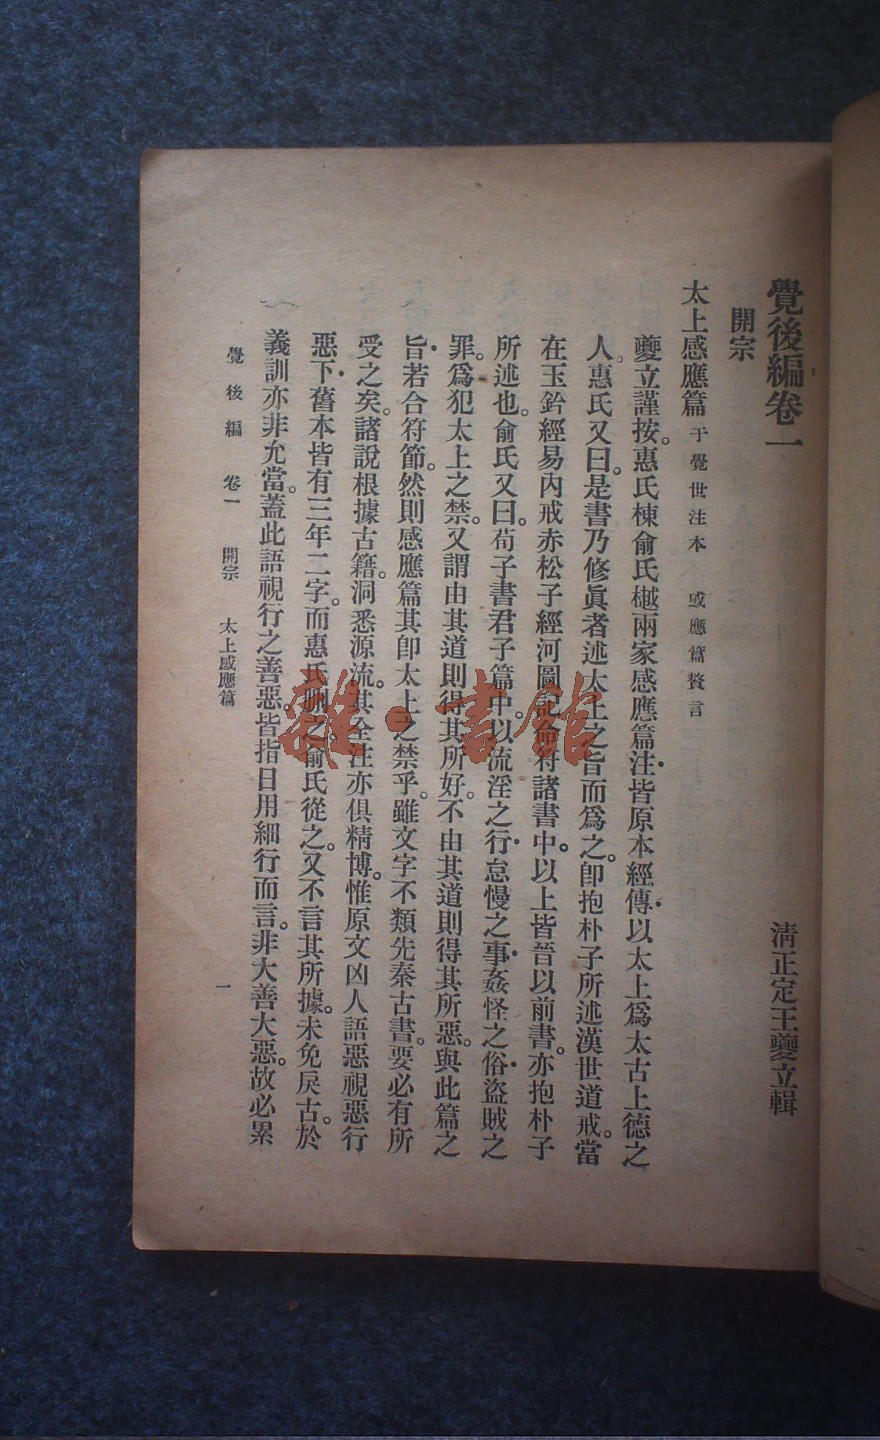 覺後編卷一
清正定王夔立輯
開宗
太上感應篇 于覺世注本 感應篇贅言
夔立謹按。惠氏棟俞氏樾兩家感應篇注。皆原本經傳。以太上爲太古上德之
人。惠氏又曰。是書乃修眞者述太上之旨而爲之。卽抱朴子所述漢世道戒。當
在玉鈐經易內戒赤松子經河圖記命符諸書中。以上皆晉以前書。亦抱朴子
所述也。俞氏又曰。荀子書君子篇中。以流淫之行。怠慢之事。姦怪之俗。盜賊之
罪。爲犯太上之禁。又謂由其道則得其所好。不由其道則得其所惡。與此篇之
旨。若合符節。然則感應篇其卽太上之禁乎。雖文字不類先秦古書。要必有所
受之矣。諸說根據古籍。洞悉源流。其全注亦俱精博。惟原文凶人語惡視惡行
惡下。舊本皆有三年二字。而惠氏刪之。俞氏從之。又不言其所據。未免戾古。於
義訓亦非允當。蓋此語視行之善惡。皆指日用細行而言。非大善大惡。故必累
覺後編 卷一 開宗 太上感應篇 一
雜·書館